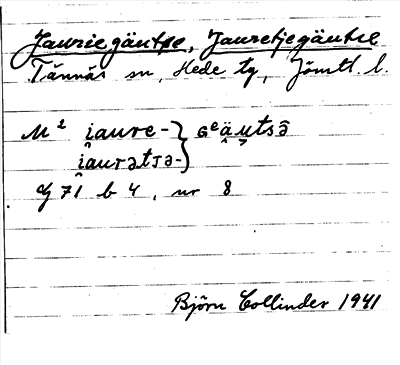 Jauriegäutse, Jauretjegäutse
Tännäs sn, Hede tg, Jämtl. l.
M² i̯aure- } ɢᵉäu̯tsâ
i̯aurətᴊə- }
G 71 b 4, nr 8
Björn Collinder 1941